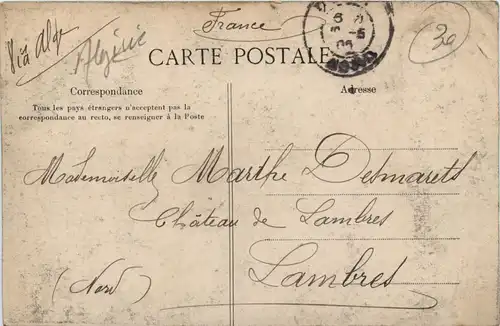 (France)
Via Alger
Algérie
30
CARTE POSTALE
Correspondance
Adresse
Tous les pays étrangers n'acceptent pas la
correspondance au recto, se renseigner à la Poste
Mademoiselle Marthe Desmarets
Château de Lambres
Lambres
(Nord)